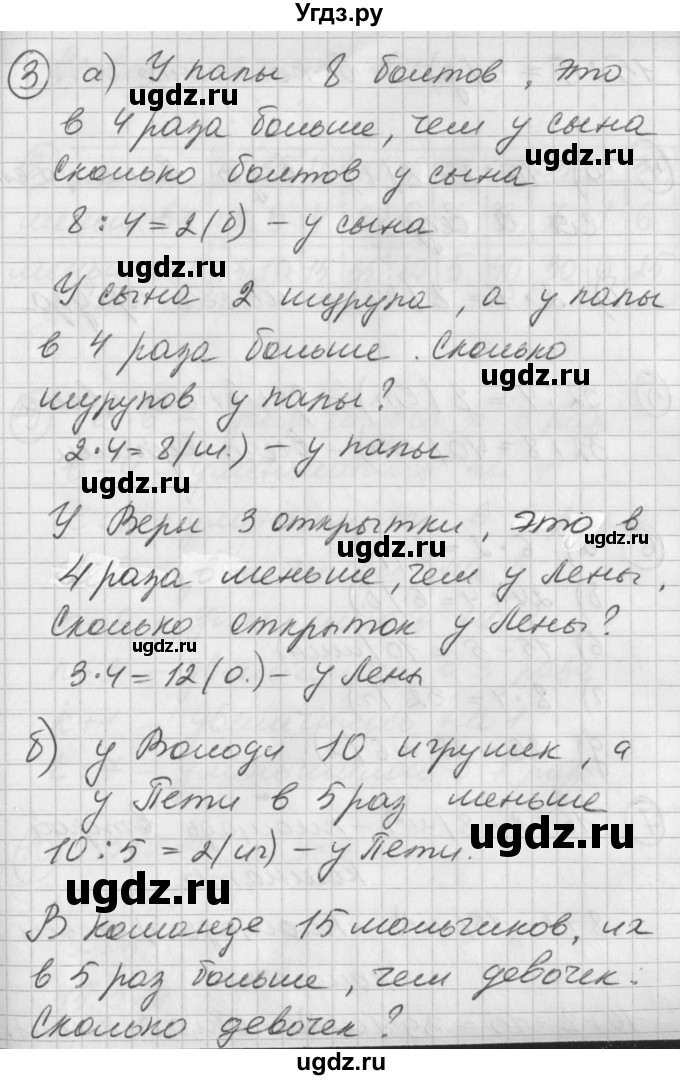 Угдз.ру
3 а) У папы 8 болтов, это
в 4 раза больше, чем у сына
Сколько болтов у сына
8 : 4 = 2 (б) - у сына
У сына 2 шурупа, а у папы
в 4 раза больше. Сколько
шурупов у папы?
2 · 4 = 8 (ш.) - у папы
У Веры 3 открытки, это в
4 раза меньше, чем у Лены.
Сколько открыток у Лены?
3 · 4 = 12 (о.) - у Лены
б) у Володи 10 игрушек, а
у Пети в 5 раз меньше
10 : 5 = 2 (иг) - у Пети.
В команде 15 мальчиков, их
в 5 раз больше, чем девочек.
Сколько девочек?
ugdz.ru
ugdz.ru
ugdz.ru
ugdz.ru
ugdz.ru
ugdz.ru
ugdz.ru
ugdz.ru
ugdz.ru
ugdz.ru
ugdz.ru